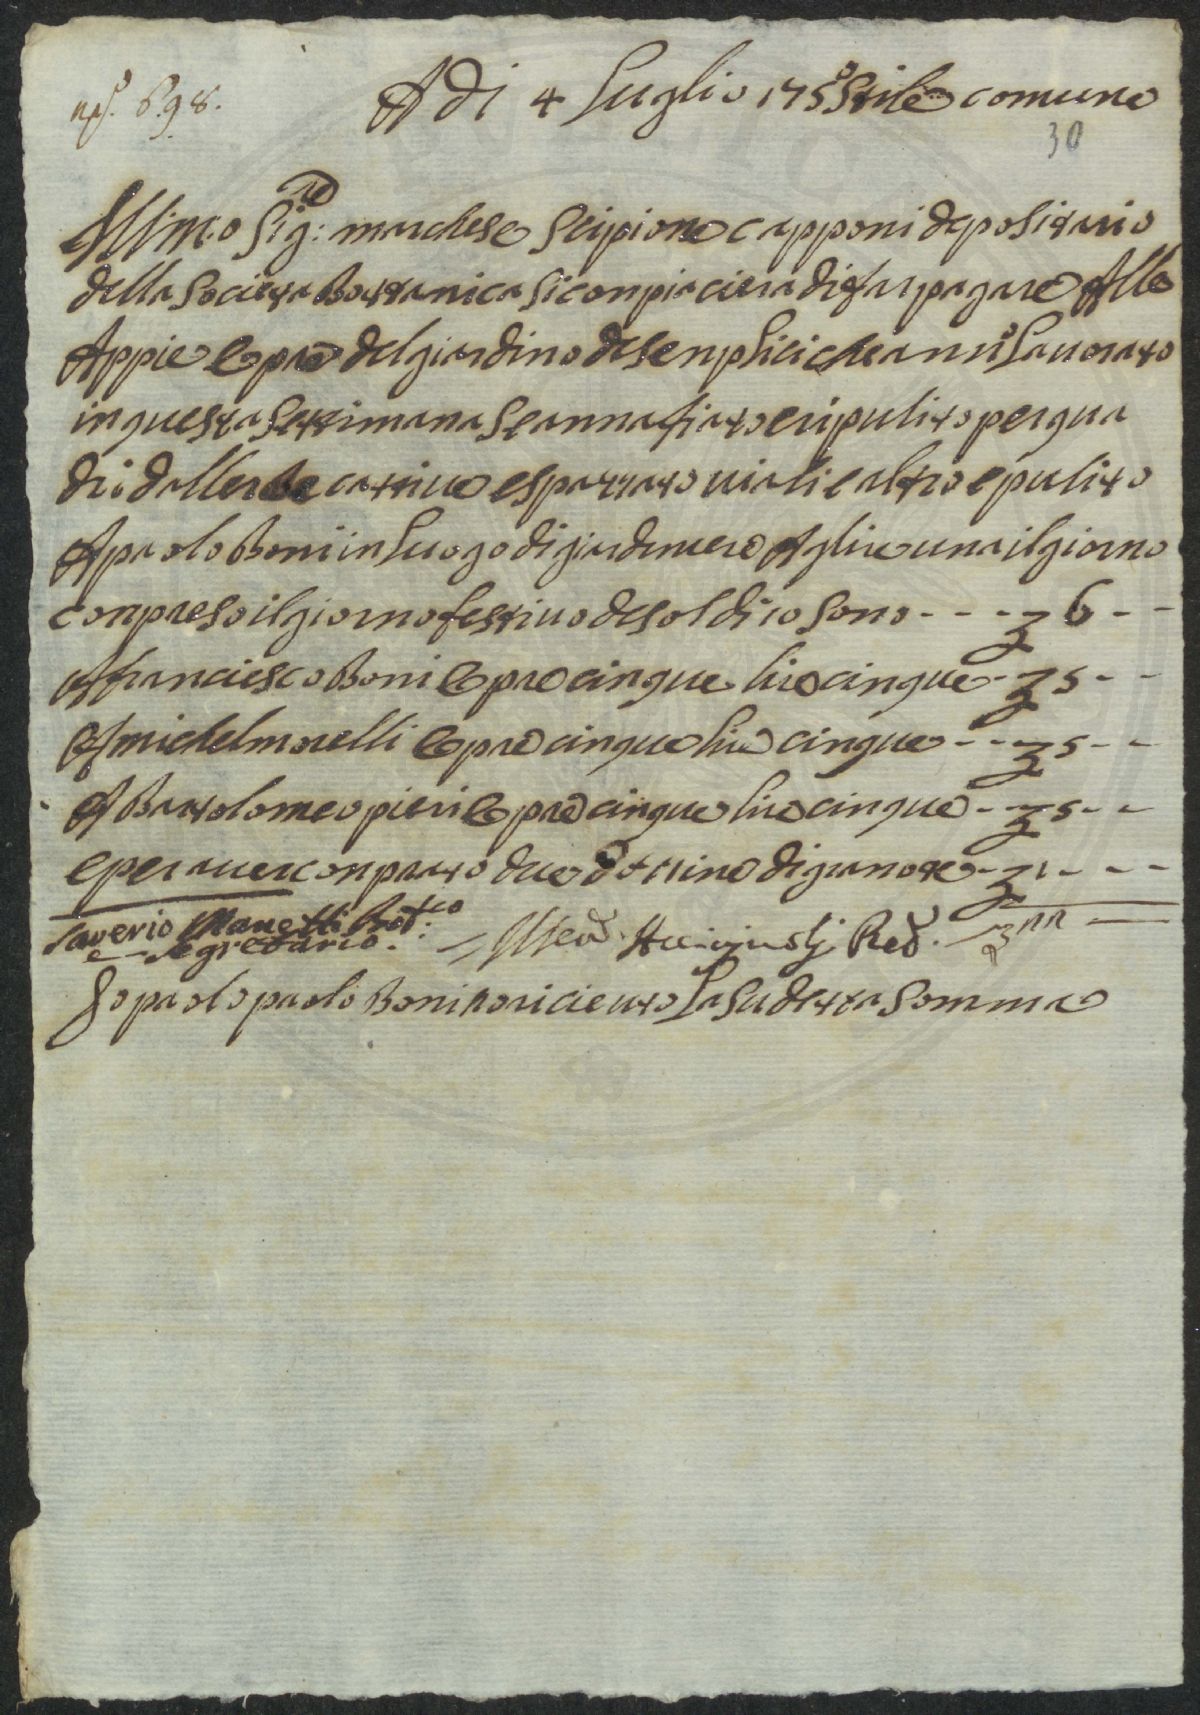 nº. 698.
A Di 4 Luglio 1755 Stile comune
30
Illmo Sig:re marchese Scipione capponi depositario
della Societa Bottanica si conpiaciera di far pagare Alle
Appie e opre del giardino de Senplici che anno Lauorato
in questa Settimana Se annafiato e ripulito per qua
dri dall erbe cattiue e spazzato uiali e altro e pulito
A paolo Boni in Luogo di giardiniere A lire una il giorno
conpreso il giorno festiuo de soldi 10 sono - - - 6 - -
A franciesco Boni opre cinque lire cinque - 5 - -
A michel morelli opre cinque lire cinque - - 5 - -
A Bartolomeo pieri opre cinque lire cinque - 5 - -
e per auer conprato due dozzine di granate - 1 - - -
Saverio Manetti Prot:co
e Segretario.
22
Io paolo paolo Boni o riceuto La Sudetta Somma